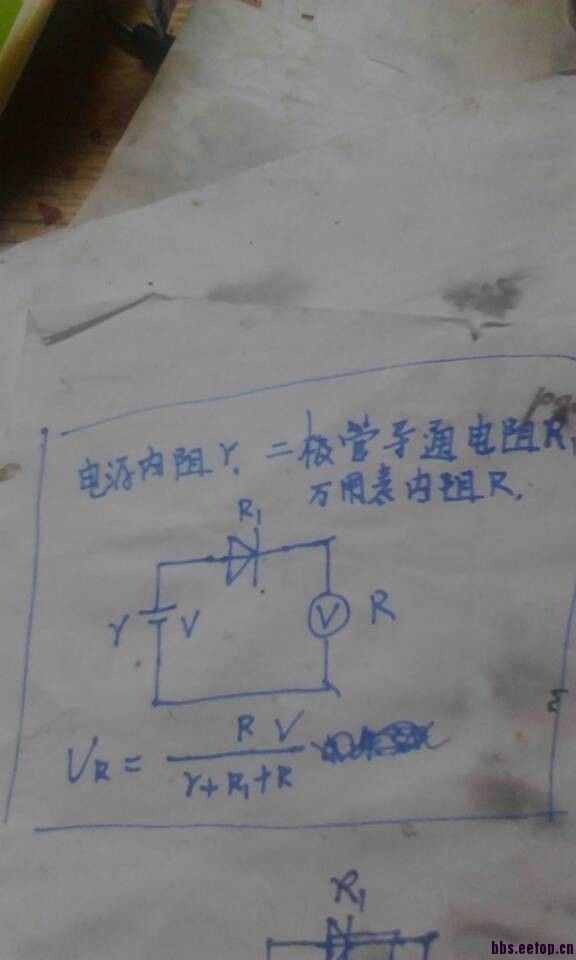 电源内阻r、二极管导通电阻R1
万用表内阻R.
R1
r V
V R
UR = R V / r+R1+R
R1
bbs.eetop.cn